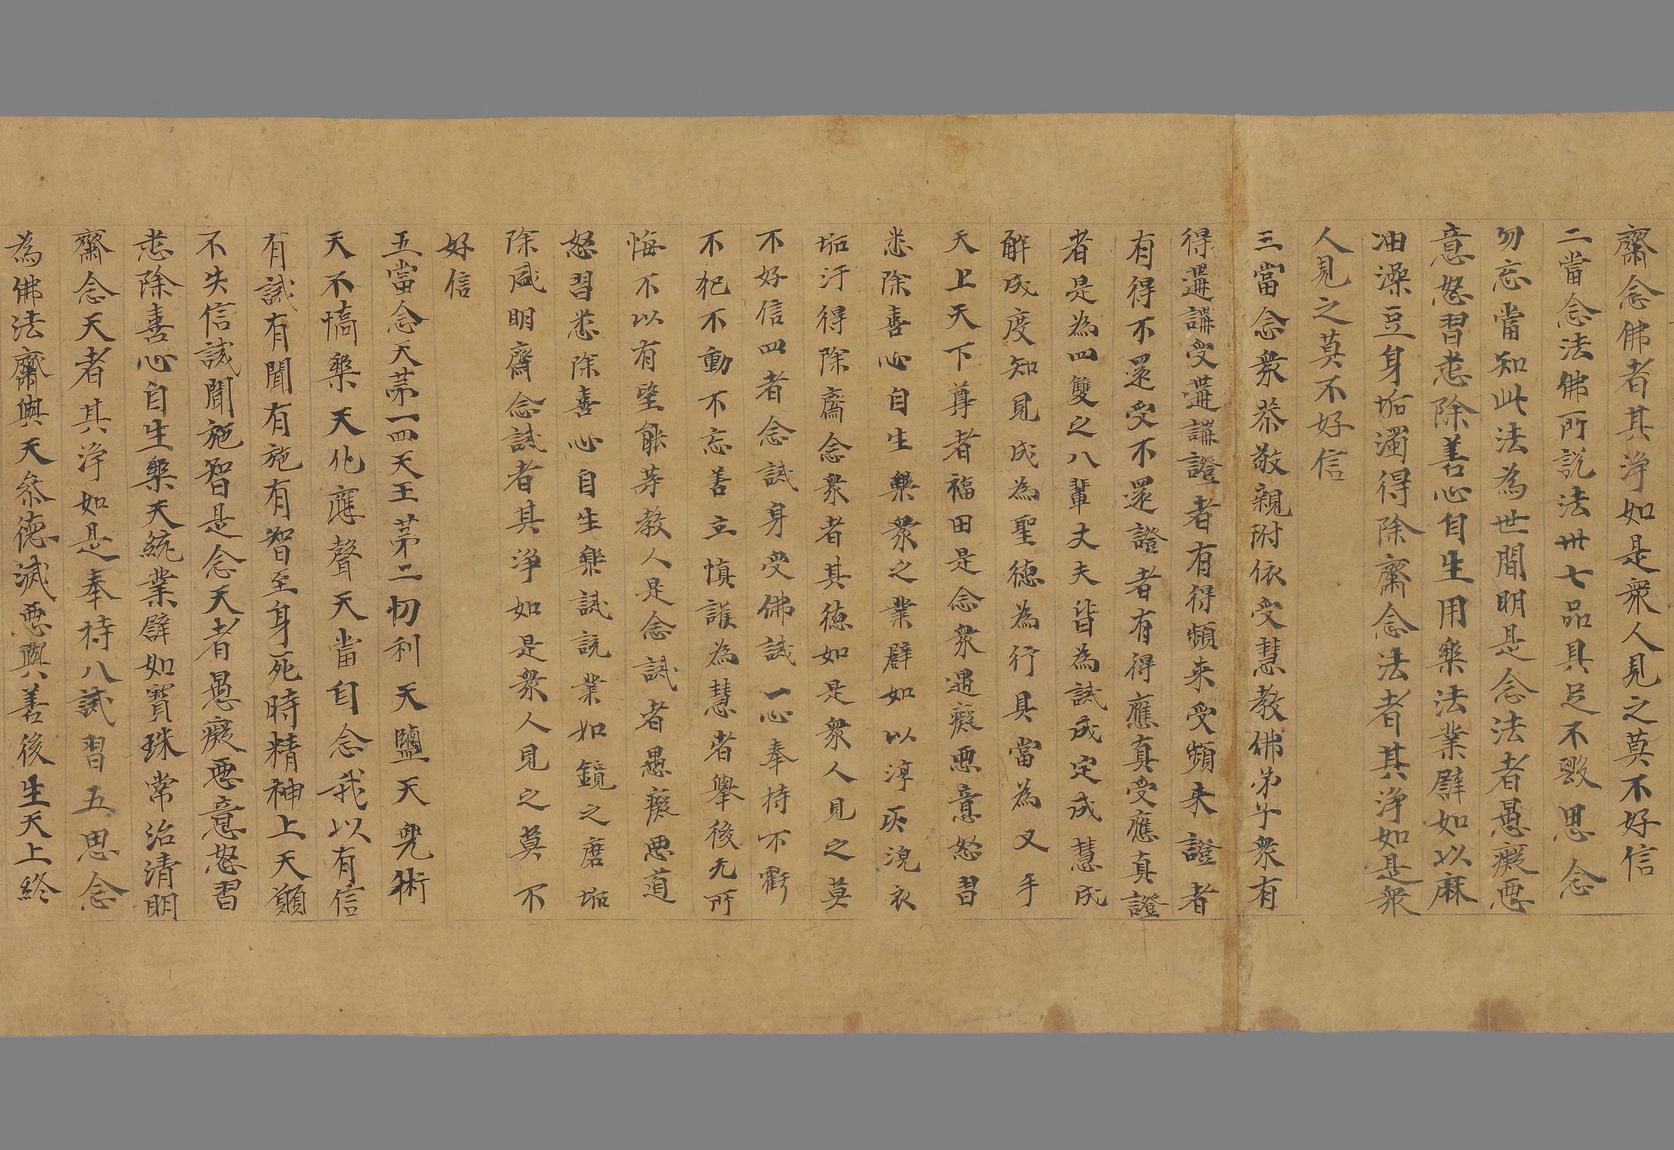 齋念佛者其淨如是衆人見之莫不好信
二當念法佛所說法卅七品具足不毀思念
勿忘當知此法為世間明是念法者愚癡惡
意怒習悉除善心自生用樂法業辟如以麻
油澡豆身垢濁得除齋念法者其淨如是衆
人見之莫不好信
三當念衆恭敬親附依受慧教佛弟子衆有
得遘講受遘講證者有得頻来受頻来證者
有得不還受不還證者有得應真受應真證
者是為四雙之八輩丈夫皆為誡成定成慧成
解成度知見成為聖德為行具當為叉手
天上天下尊者福田是念衆愚癡惡意怒習
悉除喜心自生樂衆之業辟如以淳灰浣衣
垢汙得除齋念衆者其德如是衆人見之莫
不好信四者念誡身受佛誡一心奉持不虧
不犯不動不忘善立慎護為慧者舉後无所
悔不以有望能等教人是念誡者愚癡惡道
怒習悉除喜心自生樂誡說業如鏡之磨垢
除盛明齋念誡者其淨如是衆人見之莫不
好信
五當念天苐一四天王苐二忉利天鹽天兜術
天不憍樂天化應聲天當自念我以有信
有誡有聞有施有智至身死時精神上天願
不失信誡聞施智是念天者愚癡惡意怒習
悉除善心自生樂天統業辟如寳珠常治清明
齋念天者其淨如是奉持八誡習五思念
為佛法齋與天叅德滅惡興善後生天上終